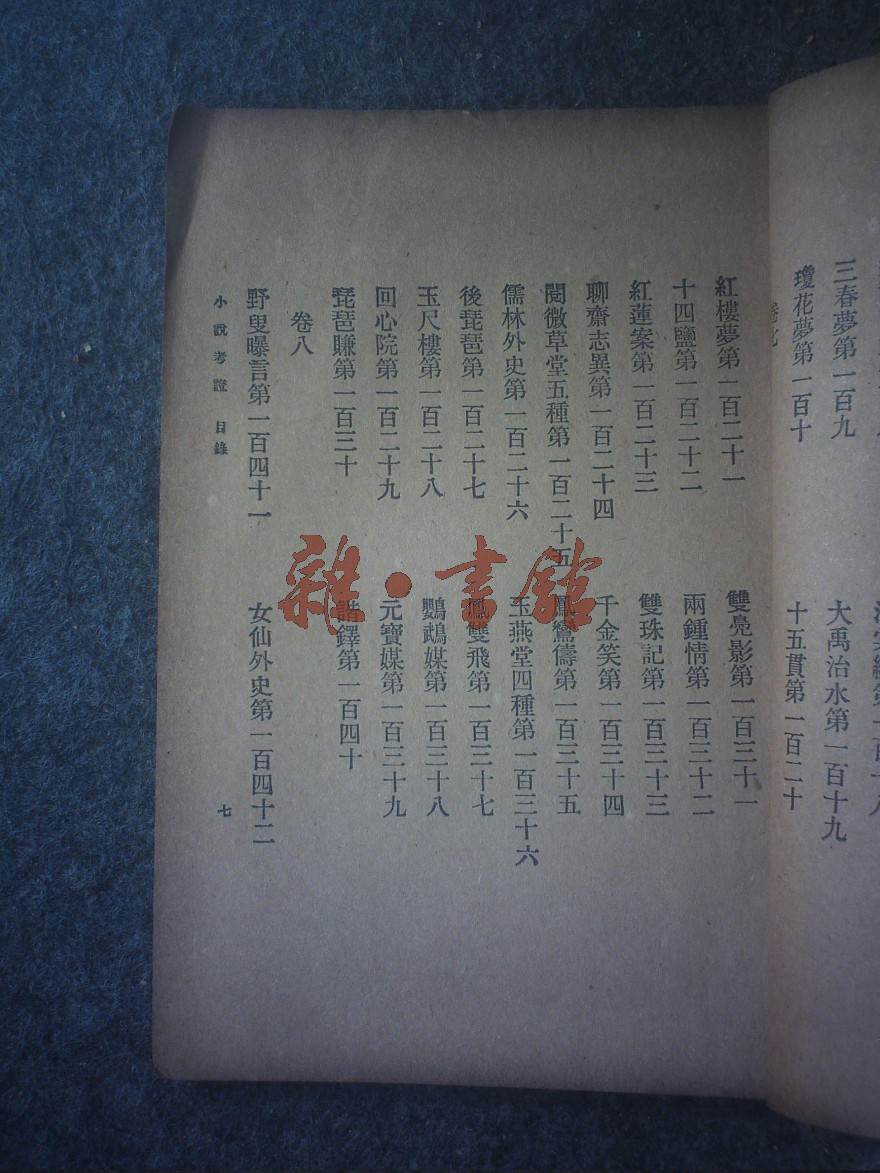 三春夢第一百九　大禹治水第一百十九
瓊花夢第一百十　十五貫第一百二十
卷七
紅樓夢第一百二十一　雙鳧影第一百三十一
十四鹽第一百二十二　兩鍾情第一百三十二
紅蓮案第一百二十三　雙珠記第一百三十三
聊齋志異第一百二十四　千金笑第一百三十四
閱微草堂五種第一百二十五　鳳鸞儔第一百三十五
儒林外史第一百二十六　玉燕堂四種第一百三十六
後琵琶第一百二十七　鳳雙飛第一百三十七
玉尺樓第一百二十八　鸚鵡媒第一百三十八
回心院第一百二十九　元寶媒第一百三十九
琵琶賺第一百三十　諧鐸第一百四十
卷八
野叟曝言第一百四十一　女仙外史第一百四十二
小說考證　目錄　七
雜·書館